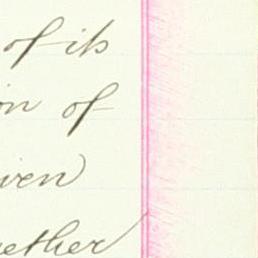 of its
on of
ven
ether